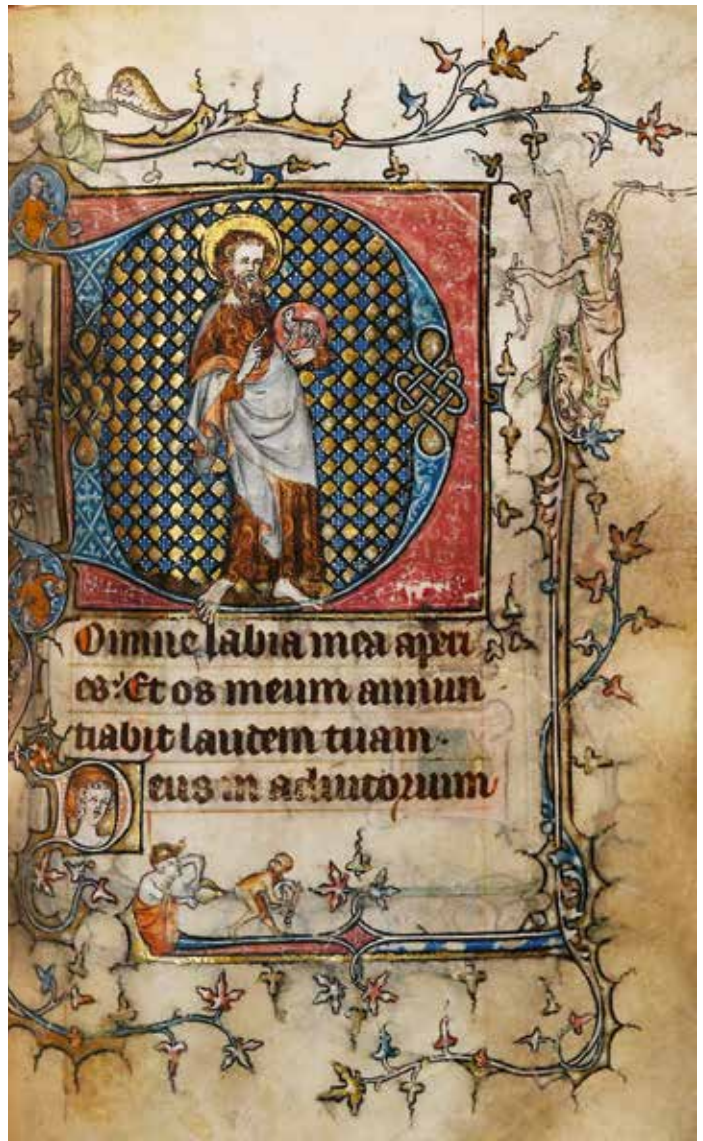 DOmine labia mea aperi
es. Et os meum annun
tiabit laudem tuam.
Deus in adiutorium